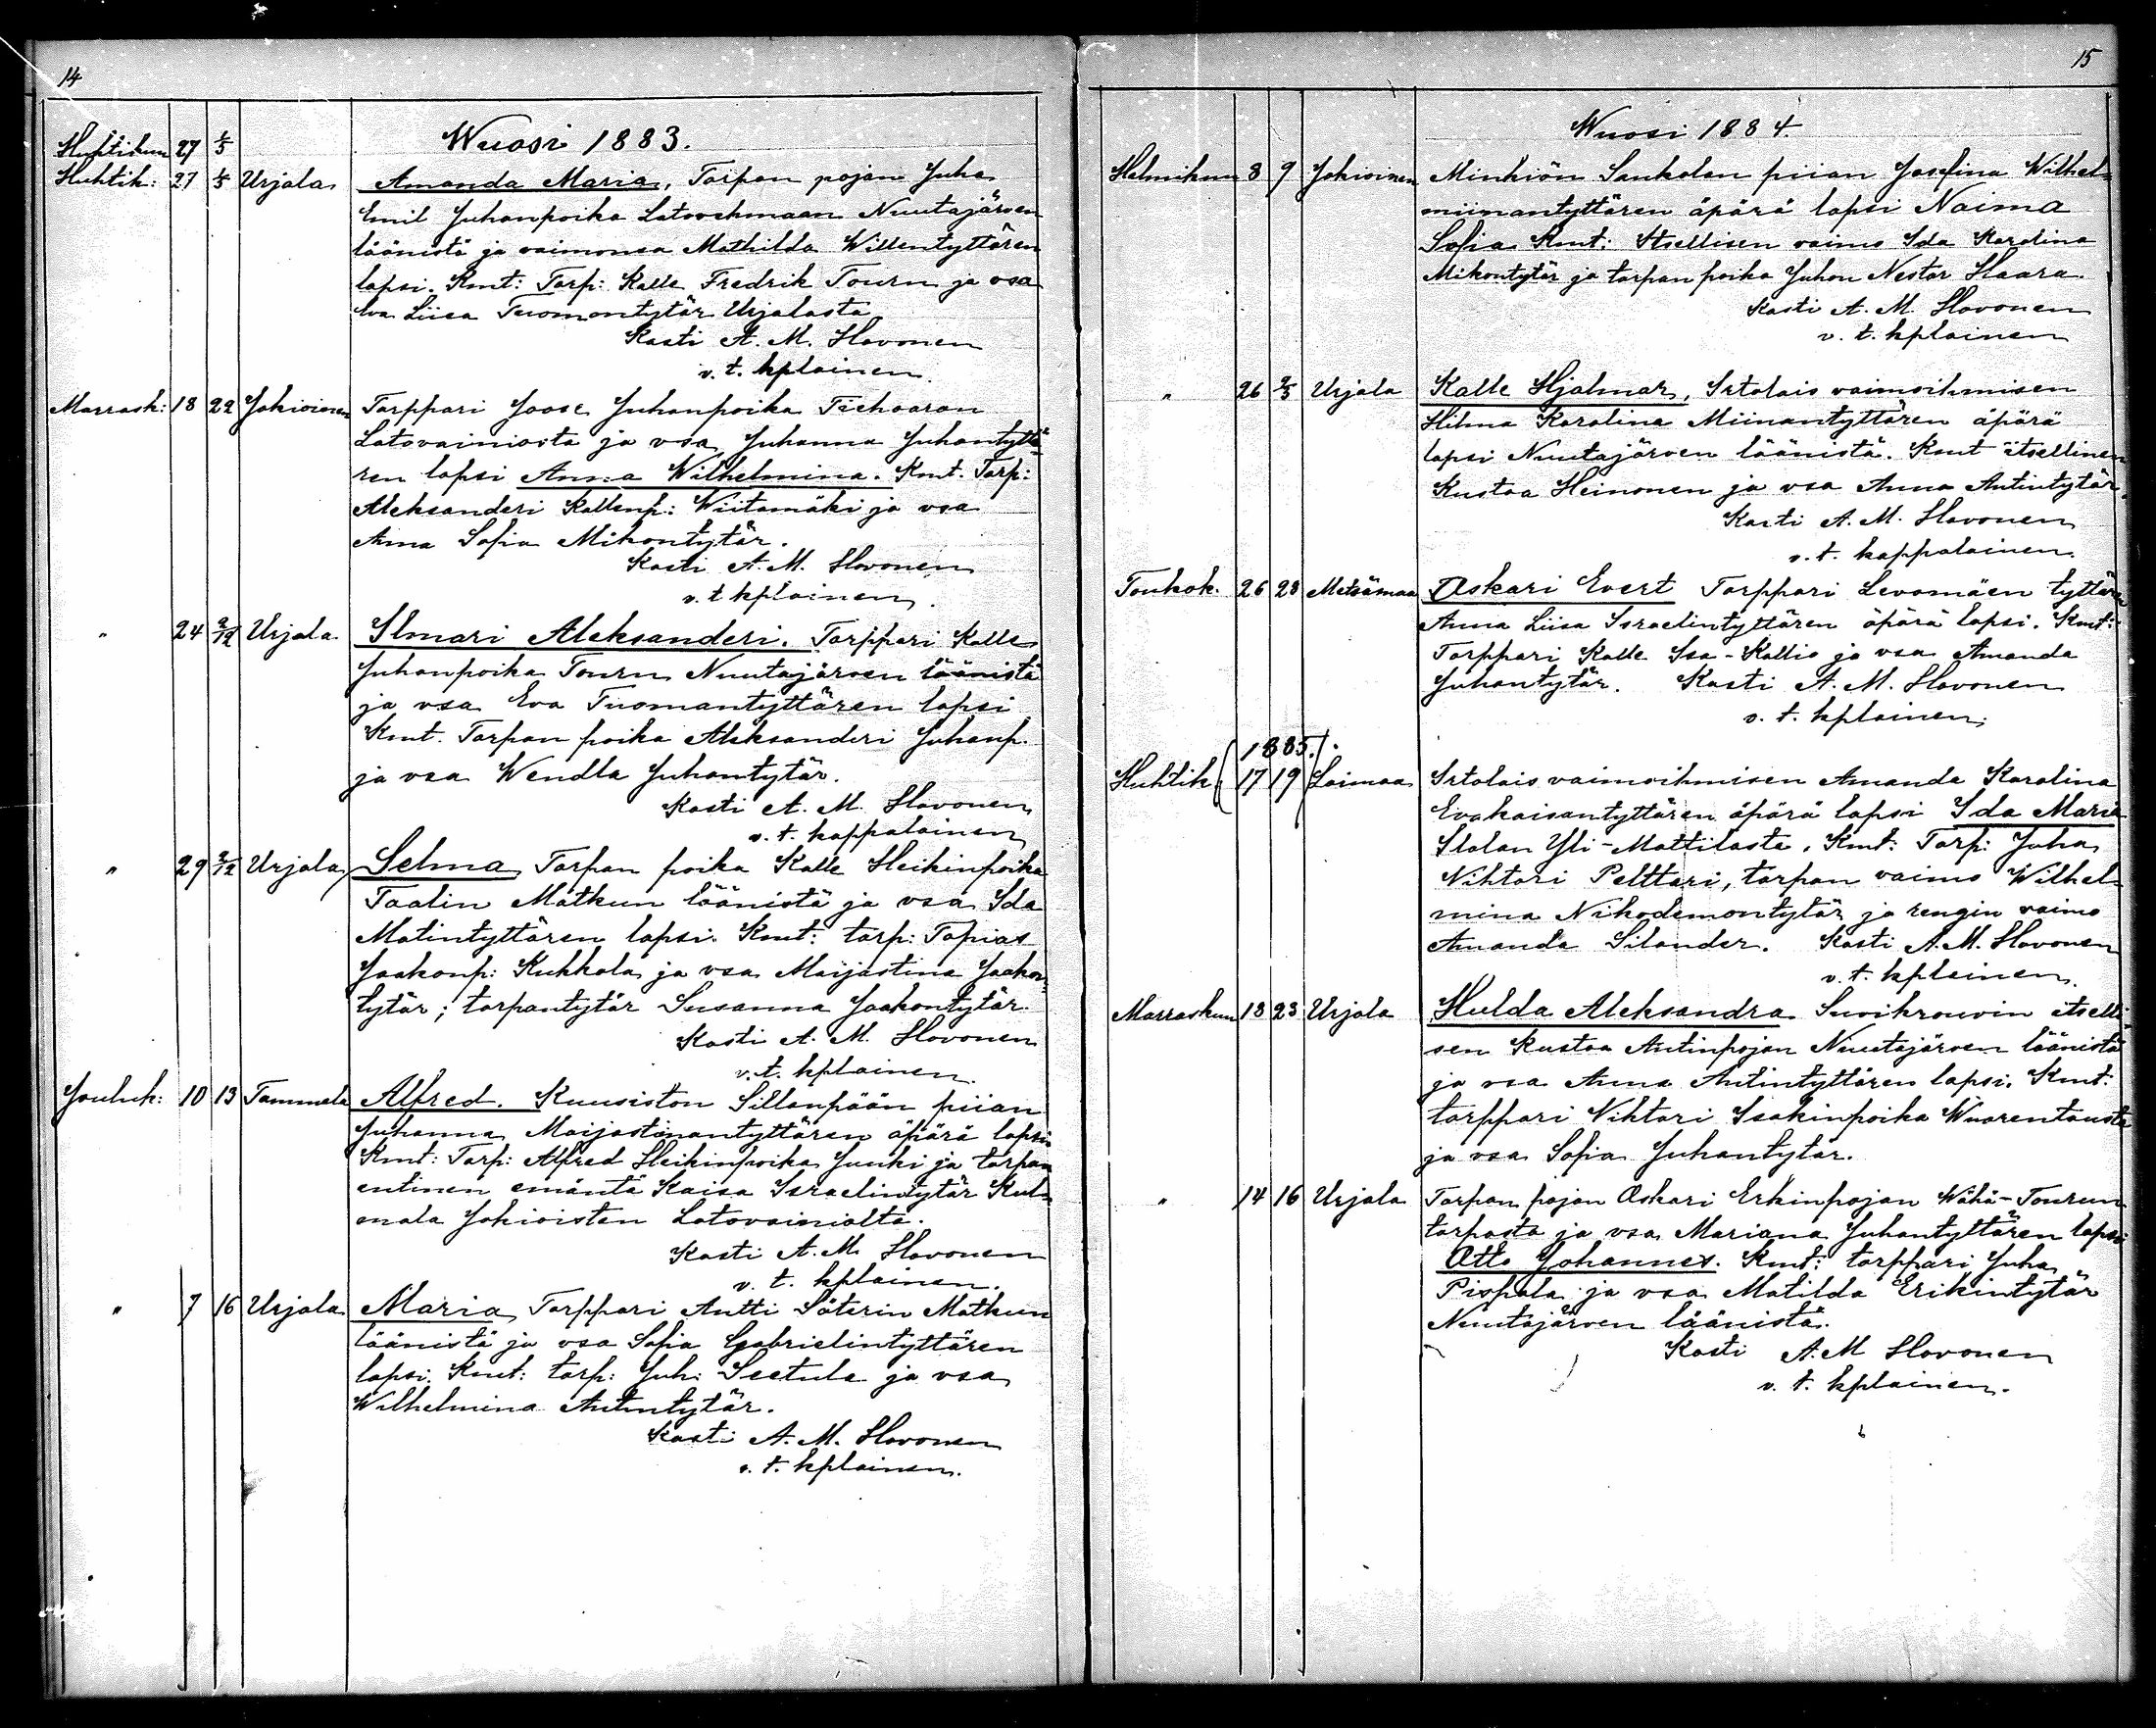 14
Wuosi 1883.
Huhtikun 27 1/5
Huhtik: 27 1/5 Urjala Amanda Maria, Torpan pojan Juha
Emil Juhanpoika Latovehmaan Nuutajärven
läänistä ja vaimonsa Mathilda Willentyttären
lapsi. Kmt: Torp: Kalle Fredrik Tourn ja vsa
Eva Liisa Tuomontytär Urjalasta
Kasti A. M. Hovonen
v. t. kplainen.
Marrask: 18 22 Jokioinen Torppari Joose Juhanpoika Tiehaaran
Latovainiosta ja vsa Juhanna Juhantyttä-
ren lapsi Anna Wilhelmina. Kmt. Torp:
Aleksanderi Kallenp: Wiitamäki ja vsa
Anna Sofia Mikontytär.
Kasti A. M. Hovonen
v. t kplainen.
" 24 2/12 Urjala. Ilmari Aleksanderi. Torppari Kalle
Juhanpoika Tourn Nuutajärven läänistä
ja vsa Eva Tuomantyttären lapsi
Kmt. Torpan poika Aleksanderi Juhanp.
ja vsa Wendla Juhantytär.
Kasti A. M. Hovonen
v. t. kappalainen
" 29 2/12 Urjala Selma Torpan poika Kalle Heikinpoika
Taalin Matkun läänistä ja vsa Ida
Matintyttären lapsi. Kmt: torp: Topias
Jaakonp: Kukkola ja vsa Maijastina Jaakon-
tytär; torpantytär Susanna Jaakontytär.
Kasti A. M. Hovonen
v. t. kplainen.
Jouluk: 10 13 Tammela Alfred. Kuusiston Sillanpään piian
Juhanna Maijastinantyttären äpärä lapsi.
Kmt: Torp: Alfred Heikinpoika Juuki ja torpan
entinen emäntä Kaisa Israelintytär Kul-
mala Jokioisten Latovainiolta.
Kasti A. M. Hovonen
v. t. kplainen.
" 7 16 Urjala. Maria Torppari Antti Säterin Matkun
läänistä ja vsa Sofia Gabrielintyttären
lapsi. Kmt: torp: Juh: Seetula ja vsa
Wilhelmina Antintytär.
Kasti A. M. Hovonen
v. t. kplainen.
15
Wuosi 1884.
Helmikun 8 9 Jokioinen Minkiön Sankolan piian Josefina Wilhel-
miinantyttären äpärä lapsi Naima
Sofia Kmt: Itsellisen vaimo Ida Karolina
Mikontytär ja torpan poika Juhon Nestor Haara.
Kasti A. M. Hovonen
v. t. kplainen
" 26 2/3 Urjala Kalle Hjalmar, Irtolais vaimoihmisen
Hilma Karolina Miinantyttären äpärä
lapsi Nuutajärven läänistä. Kmt itsellinen
Kustaa Heinonen ja vsa Anna Antintytär.
Kasti A. M. Hovonen
v. t. kappalainen.
Toukok. 26 28 Metsämaa Oskari Evert Torppari Levomäen tyttären
Anna Liisa Israelintyttären äpärä lapsi. Kmt:
Torppari Kalle Isa-Kallio ja vsa Amanda
Juhantytär. Kasti A. M. Hovonen
v. t. kplainen.
1885.
Huhtik 17 19 Loimaa Irtolais vaimoihmisen Amanda Karolina
Evakaisantyttären äpärä lapsi Ida Maria
Ilolan Yli-Mattilasta. Kmt: Torp: Juha
Nihtori Pelttari, torpan vaimo Wilhel-
mina Nikodemontytär ja rengin vaimo
Amanda Silander. Kasti A. M. Hovonen
v. t. kplainen.
Marraskun 13 23 Urjala Hulda Aleksandra Suvikrouvin itselli-
sen Kustaa Antinpojan Nuutajärven läänistä
ja vsa Anna Antintyttären lapsi. Kmt:
torppari Vihtori Isakinpoika Wuorentausta
ja vsa Sofia Juhantytär.
" 14 16 Urjala Torpan pojan Oskari Erkinpojan Wähä-Tourun
torpasta ja vsa Mariana Juhantyttären lapsi
Otto Johannes. Kmt: torppari Juha
Pispala ja vsa Matilda Erikintytär
Nuutajärven läänistä.
Kasti A. M Hovonen
v. t. kplainen.